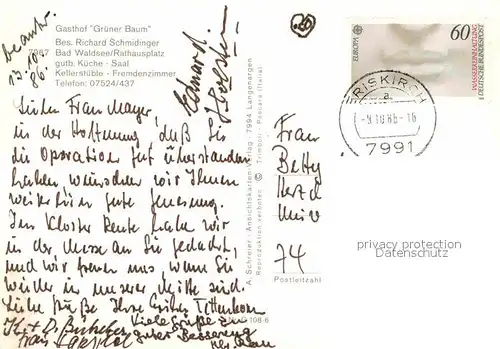 Gasthof "Grüner Baum"
Bes. Richard Schmidinger
7967 Bad Waldsee/Rathausplatz
gutb. Küche - Saal
Kellerstüble - Fremdenzimmer
Telefon: 07524/437
Liebe Frau Mayer,
in der Hoffnung, daß Sie
die Operation gut überstanden
haben wünschen wir Ihnen
weiterhin gute Genesung.
Im Kloster Reute habe wir
in der Messe an Sie gedacht,
und wir freuen uns, wenn Sie
wieder in unserer Mitte sind.
Liebe Grüße Ihre
Viele Grüße und
guter Besserung
A. Schreier - Ansichtskarten-Verlag - 7994 Langenargen
Reproduktion verboten © Trimboli - Pescara (Italia)
Frau
Betty
74
Postleitzahl
EUROPA
60
WASSERREINHALTUNG
DEUTSCHE BUNDESPOST
ERISKIRCH
a
-9.10.86-16
7991
privacy protection
Datenschutz